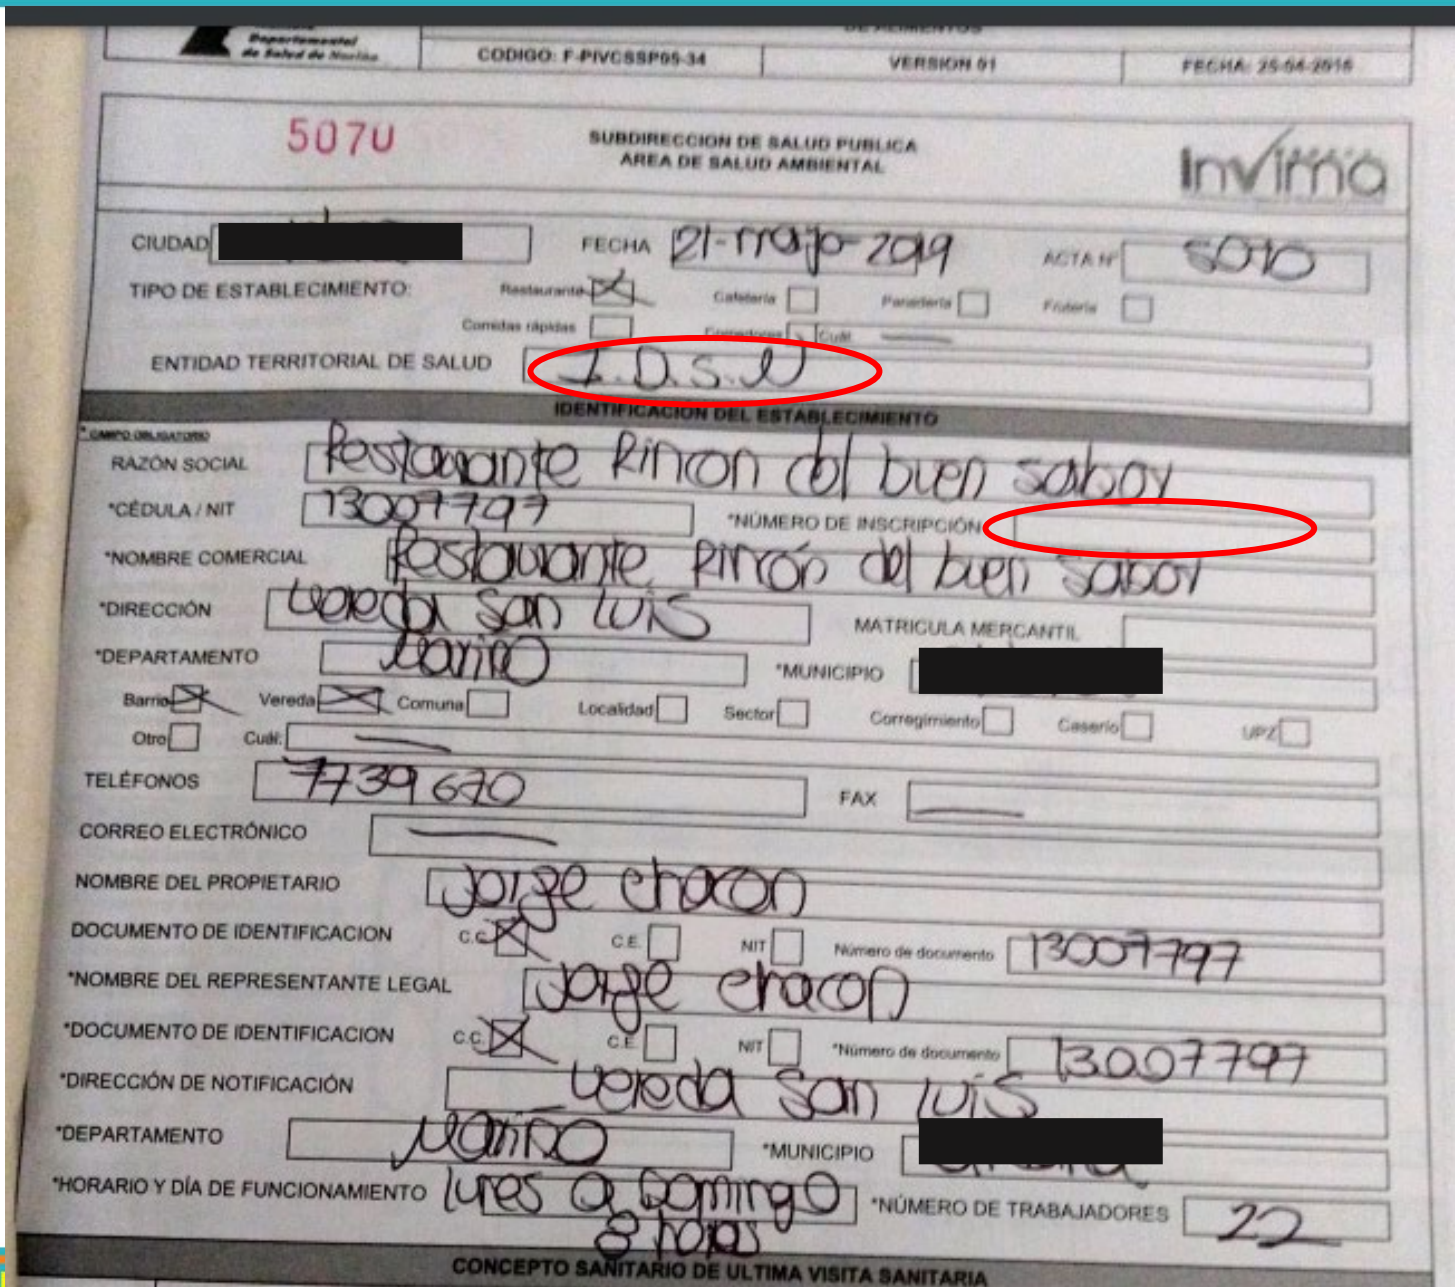 DE ALIMENTOS
Departamental
de Salud de Nariño
CODIGO: F-PIVCSSP05-34 VERSION 01 FECHA: 25-04-2016
5070 SUBDIRECCION DE SALUD PUBLICA
AREA DE SALUD AMBIENTAL
Invima
CIUDAD FECHA 21-mayo-2019 ACTA N° 5070
TIPO DE ESTABLECIMIENTO: Restaurante X Cafetería Panadería Frutería
Comidas rápidas Comedores Cuál
ENTIDAD TERRITORIAL DE SALUD I.D.S.N
IDENTIFICACION DEL ESTABLECIMIENTO
* CAMPO OBLIGATORIO
RAZÓN SOCIAL Restaurante Rincon del buen sabor
*CÉDULA / NIT 13007797 *NÚMERO DE INSCRIPCIÓN
*NOMBRE COMERCIAL Restaurante Rincón del buen sabor
*DIRECCIÓN vereda San Luis MATRICULA MERCANTIL
*DEPARTAMENTO Nariño *MUNICIPIO
Barrio X Vereda X Comuna Localidad Sector Corregimiento Caserío UPZ
Otro Cuál:
TELÉFONOS 7739670 FAX
CORREO ELECTRÓNICO
NOMBRE DEL PROPIETARIO Jorge chacon
DOCUMENTO DE IDENTIFICACION C.C X C.E. NIT Número de documento 13007797
*NOMBRE DEL REPRESENTANTE LEGAL Jorge chacon
*DOCUMENTO DE IDENTIFICACION C.C. X C.E. NIT *Número de documento 13007797
*DIRECCIÓN DE NOTIFICACIÓN vereda San Luis
*DEPARTAMENTO Nariño *MUNICIPIO
*HORARIO Y DÍA DE FUNCIONAMIENTO lunes a Domingo *NÚMERO DE TRABAJADORES 22
8 horas
CONCEPTO SANITARIO DE ULTIMA VISITA SANITARIA